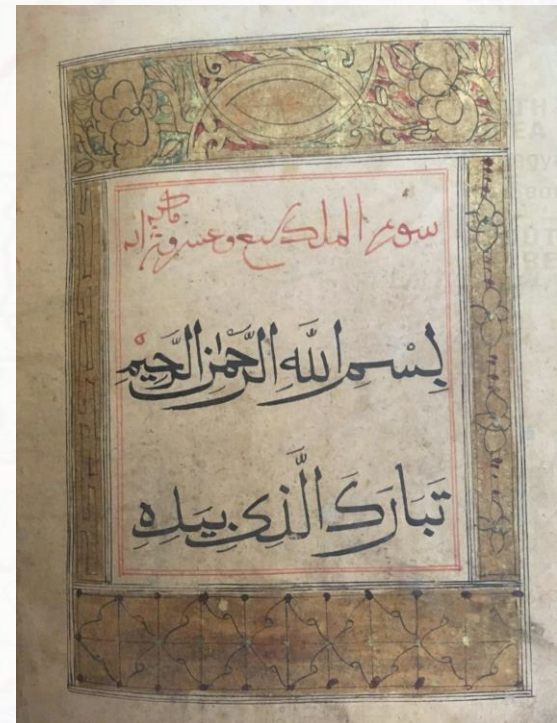 سورة الملك سبع وعشرون اية
بِسْمِ اللَّهِ الرَّحْمٰنِ الرَّحِيْمِ
تَبَارَكَ الَّذِي بِيَدِهِ